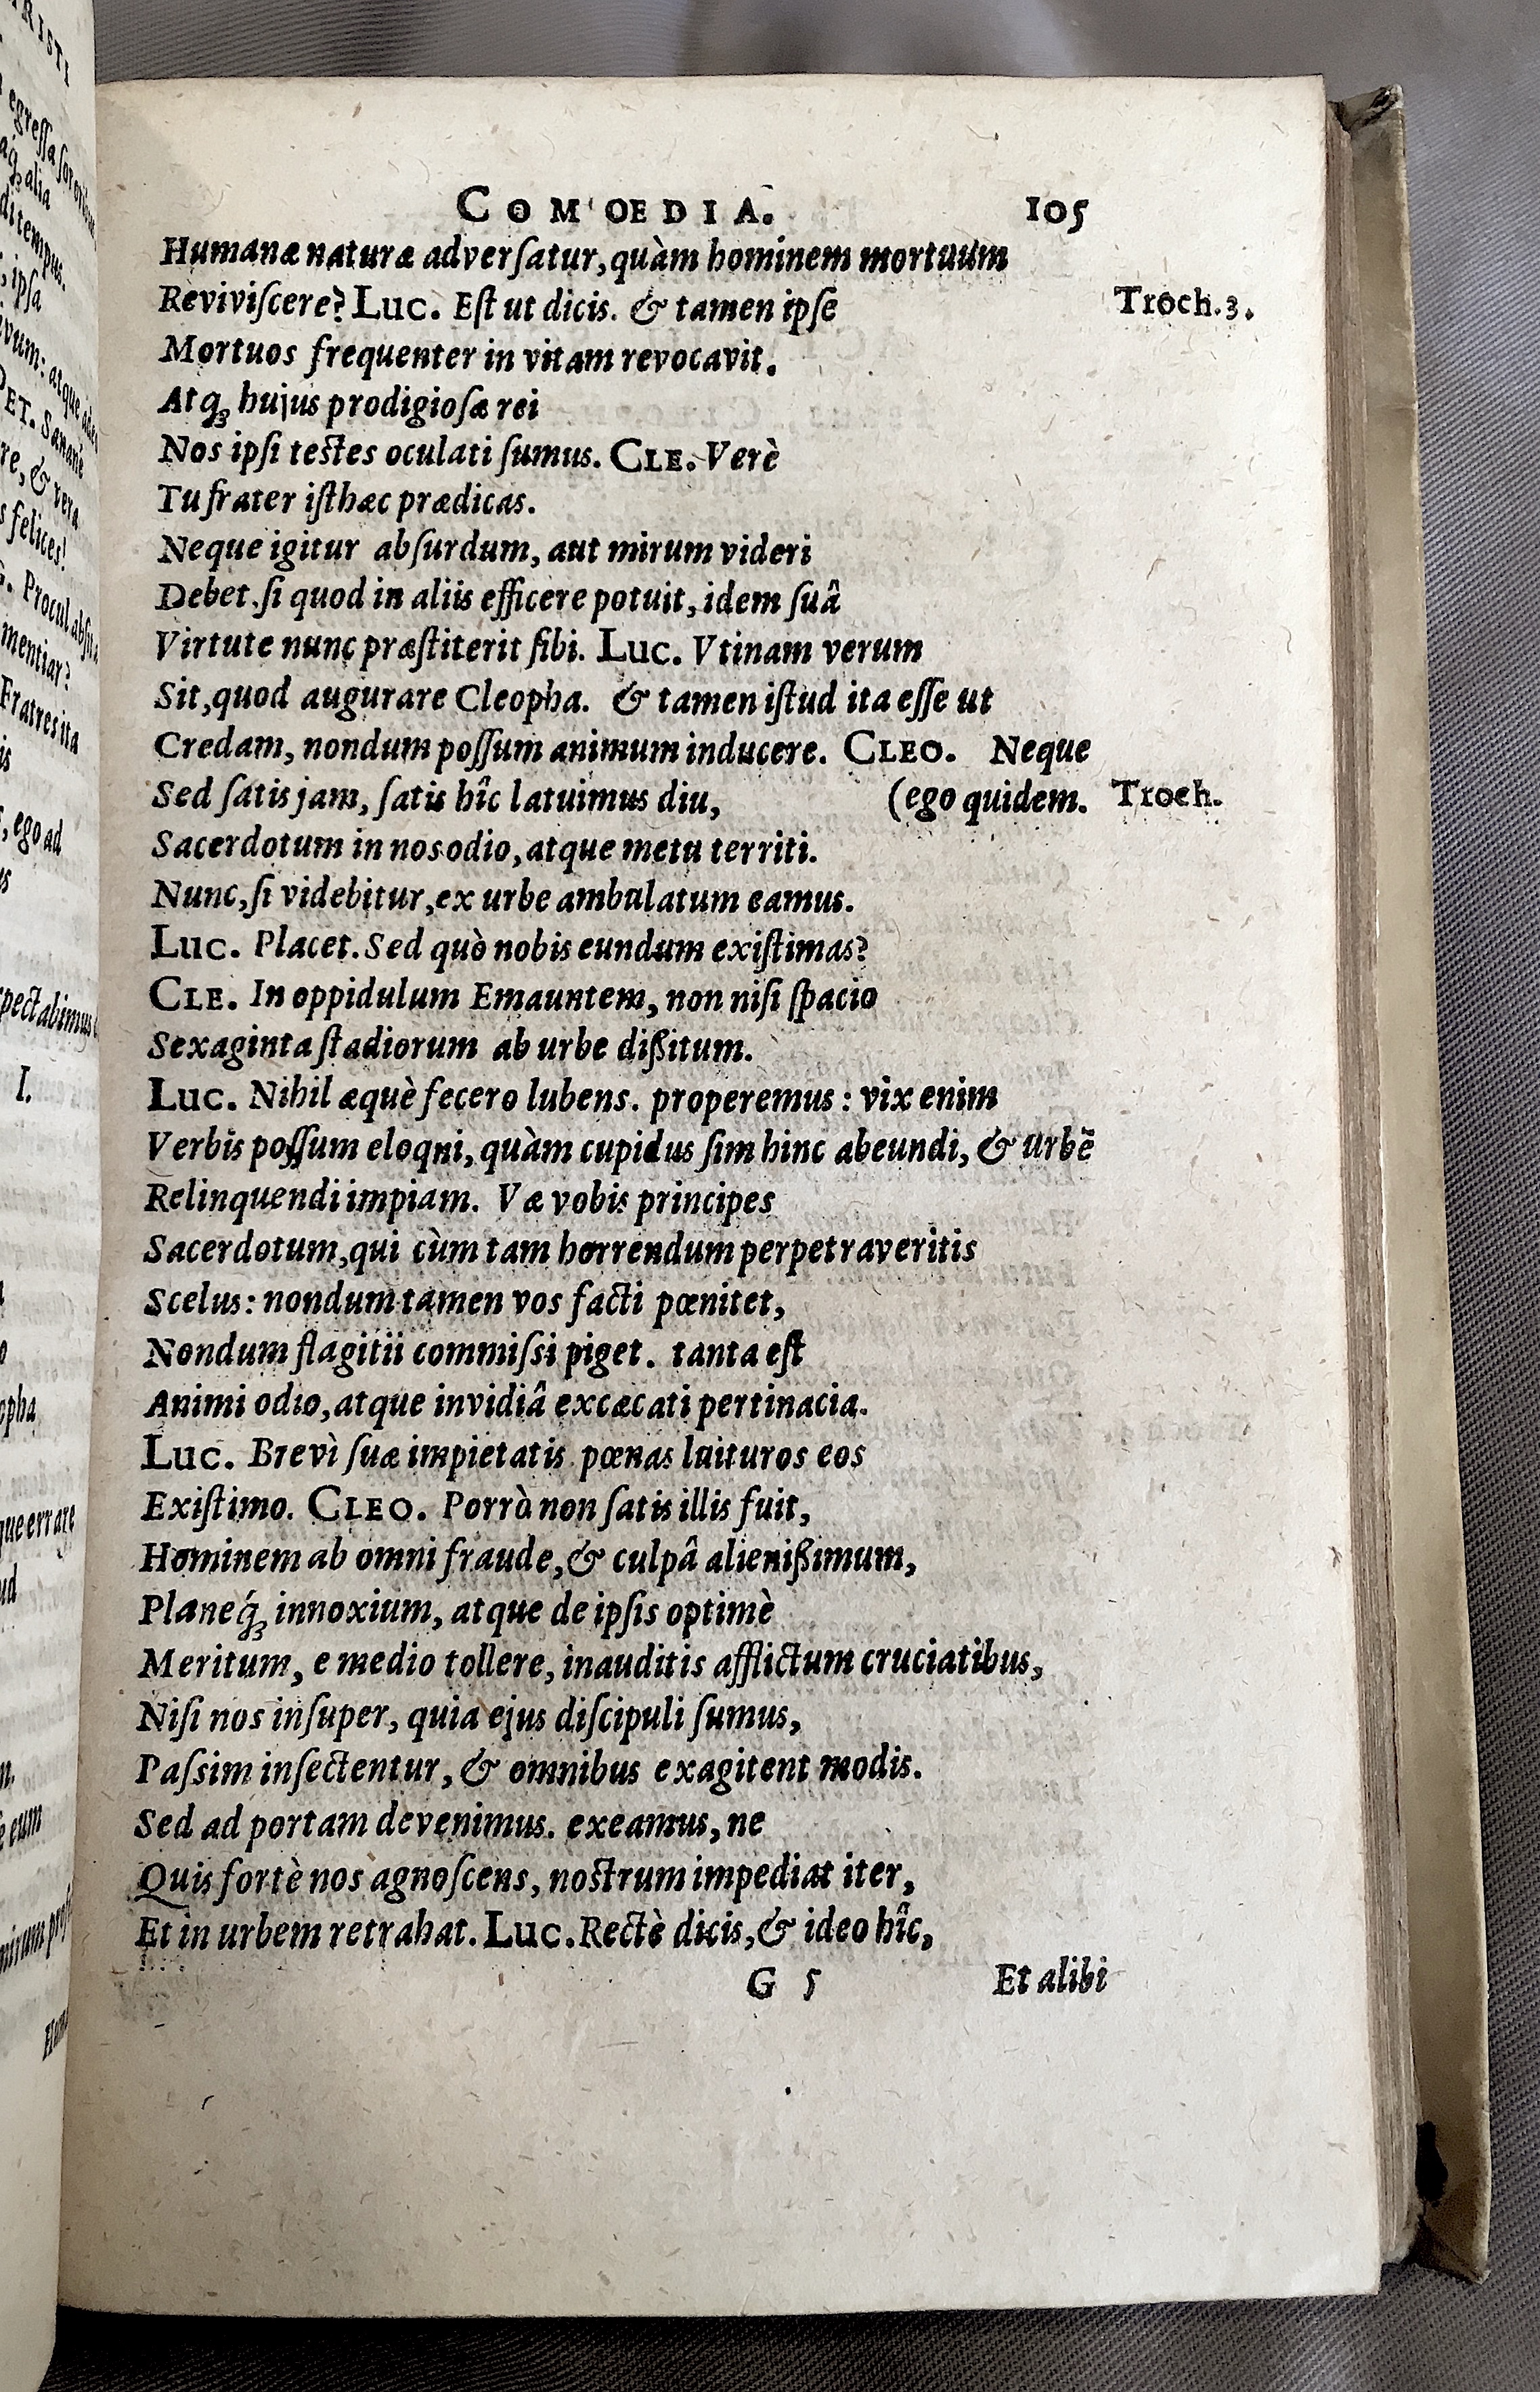 COMOEDIA. 105
Humanæ naturæ adverſatur, quàm hominem mortuum
Reviviſcere? Luc. Eſt ut dicis. & tamen ipſe Troch.3.
Mortuos frequenter in vitam revocavit.
Atq; hujus prodigioſæ rei
Nos ipſi teſtes oculati ſumus. CLE. Verè
Tu frater iſthæc prædicas.
Neque igitur abſurdum, aut mirum videri
Debet. ſi quod in aliis efficere potuit, idem ſuâ
Virtute nunc præſtiterit ſibi. Luc. Vtinam verum
Sit, quod augurare Cleopha. & tamen iſtud ita eſſe ut
Credam, nondum poſſum animum inducere. CLEO. Neque
Sed ſatis jam, ſatis hîc latuimus diu, (ego quidem. Troch.
Sacerdotum in nos odio, atque metu territi.
Nunc, ſi videbitur, ex urbe ambulatum eamus.
Luc. Placet. Sed quò nobis eundum exiſtimas?
CLE. In oppidulum Emauntem, non niſi ſpacio
Sexaginta ſtadiorum ab urbe dißitum.
Luc. Nihil æquè fecero lubens. properemus: vix enim
Verbis poſſum eloqni, quàm cupidus ſim hinc abeundi, & urbē
Relinquendi impiam. Væ vobis principes
Sacerdotum, qui cùm tam horrendum perpetraveritis
Scelus: nondum tamen vos facti pœnitet,
Nondum flagitii commiſsi piget. tanta eſt
Animi odio, atque invidiâ excæcati pertinacia.
Luc. Brevì ſuæ impietatis pœnas luituros eos
Exiſtimo. CLEO. Porrò non ſatis illis fuit,
Hominem ab omni fraude, & culpâ alienißimum,
Planeq́; innoxium, atque de ipſis optimè
Meritum, e medio tollere, inauditis afflictum cruciatibus,
Niſi nos inſuper, quia ejus diſcipuli ſumus,
Paſsim inſectentur, & omnibus exagitent modis.
Sed ad portam devenimus. exeamus, ne
Quis fortè nos agnoſcens, noſtrum impediat iter,
Et in urbem retrahat. Luc. Rectè dicis, & ideo hîc,
G 5 Et alibi